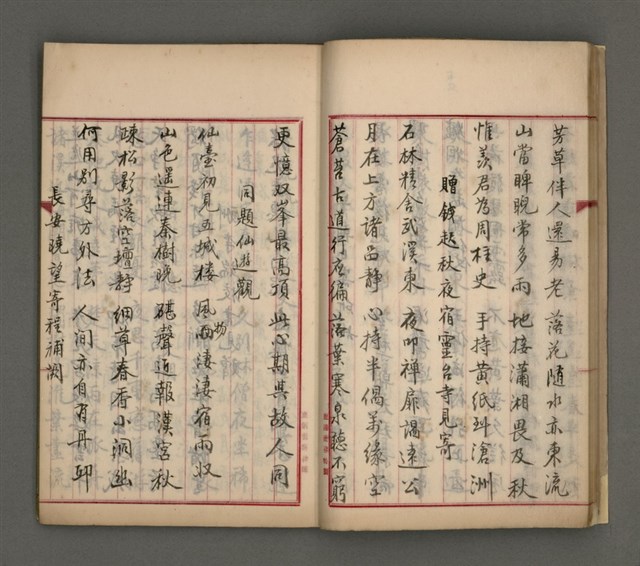 芳草伴人還易老　落花隨水亦東流
山當睥睨常多雨　地接瀟湘畏及秋
惟羨君為周柱史　手持黃紙到滄洲
贈錢起秋夜宿靈台寺見寄
石林精舍武溪東　夜叩禪扉謁遠公
月在上方諸品靜　心持半偈萬緣空
蒼苔古道行應徧　落葉寒泉聽不窮
更憶双峯最高頂　此心期與故人同
同題仙遊觀
仙臺初見五城樓　風物淒淒宿雨收
山色遥連秦樹晚　碪聲近報漢宮秋
疎松影落空壇靜　細草春香小洞幽
何用別尋方外法　人間亦自有丹邱
長安曉望寄程補闕